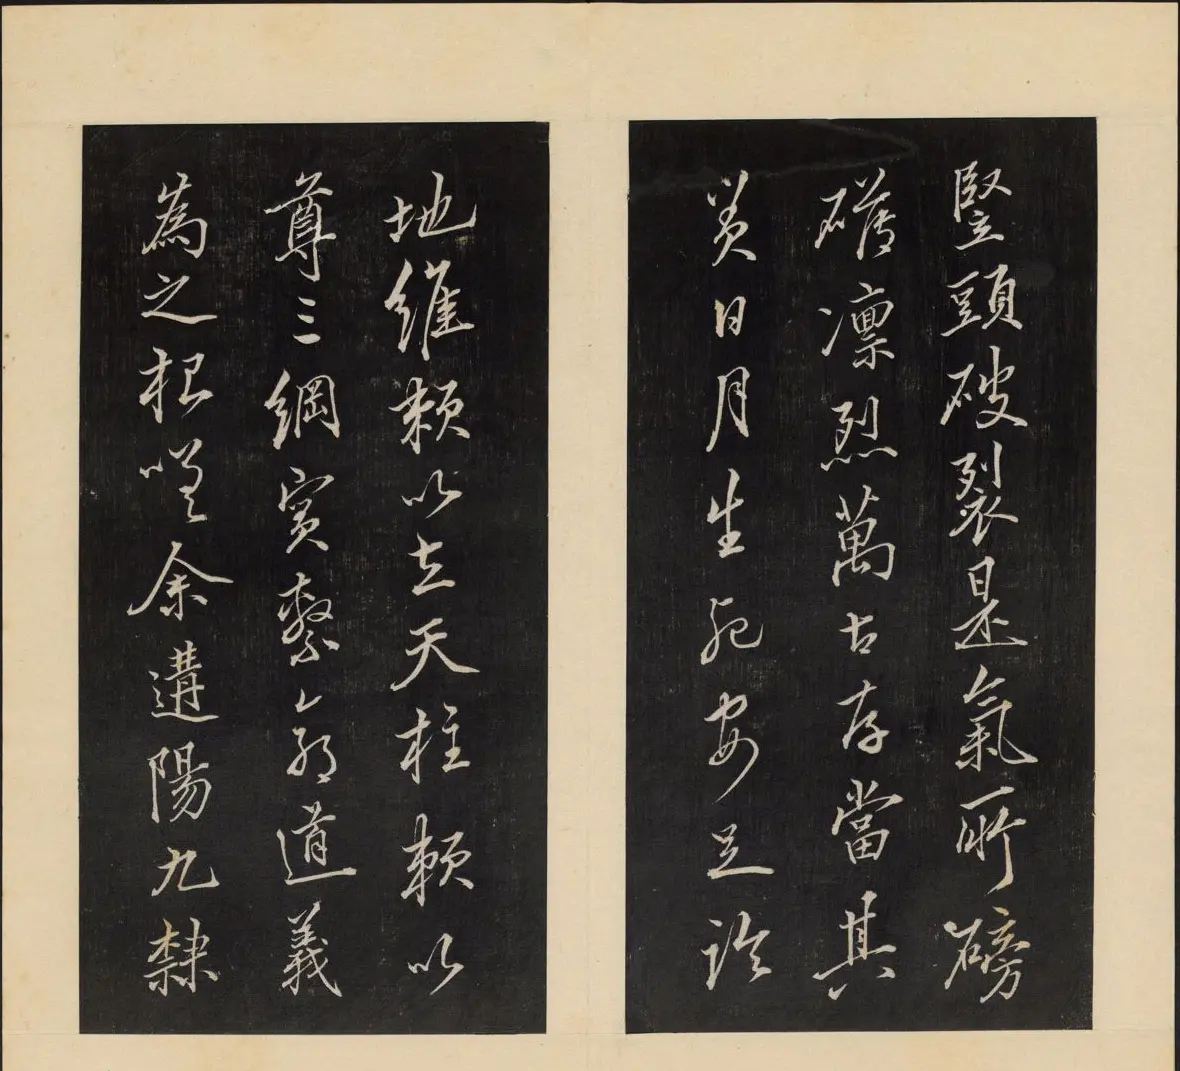 竪頭破裂是氣所磅
礴凛烈萬古存當其
貫日月生死安足論
地維賴以立天柱賴以
尊三綱實繫命道義
為之根嗟余遘陽九隸